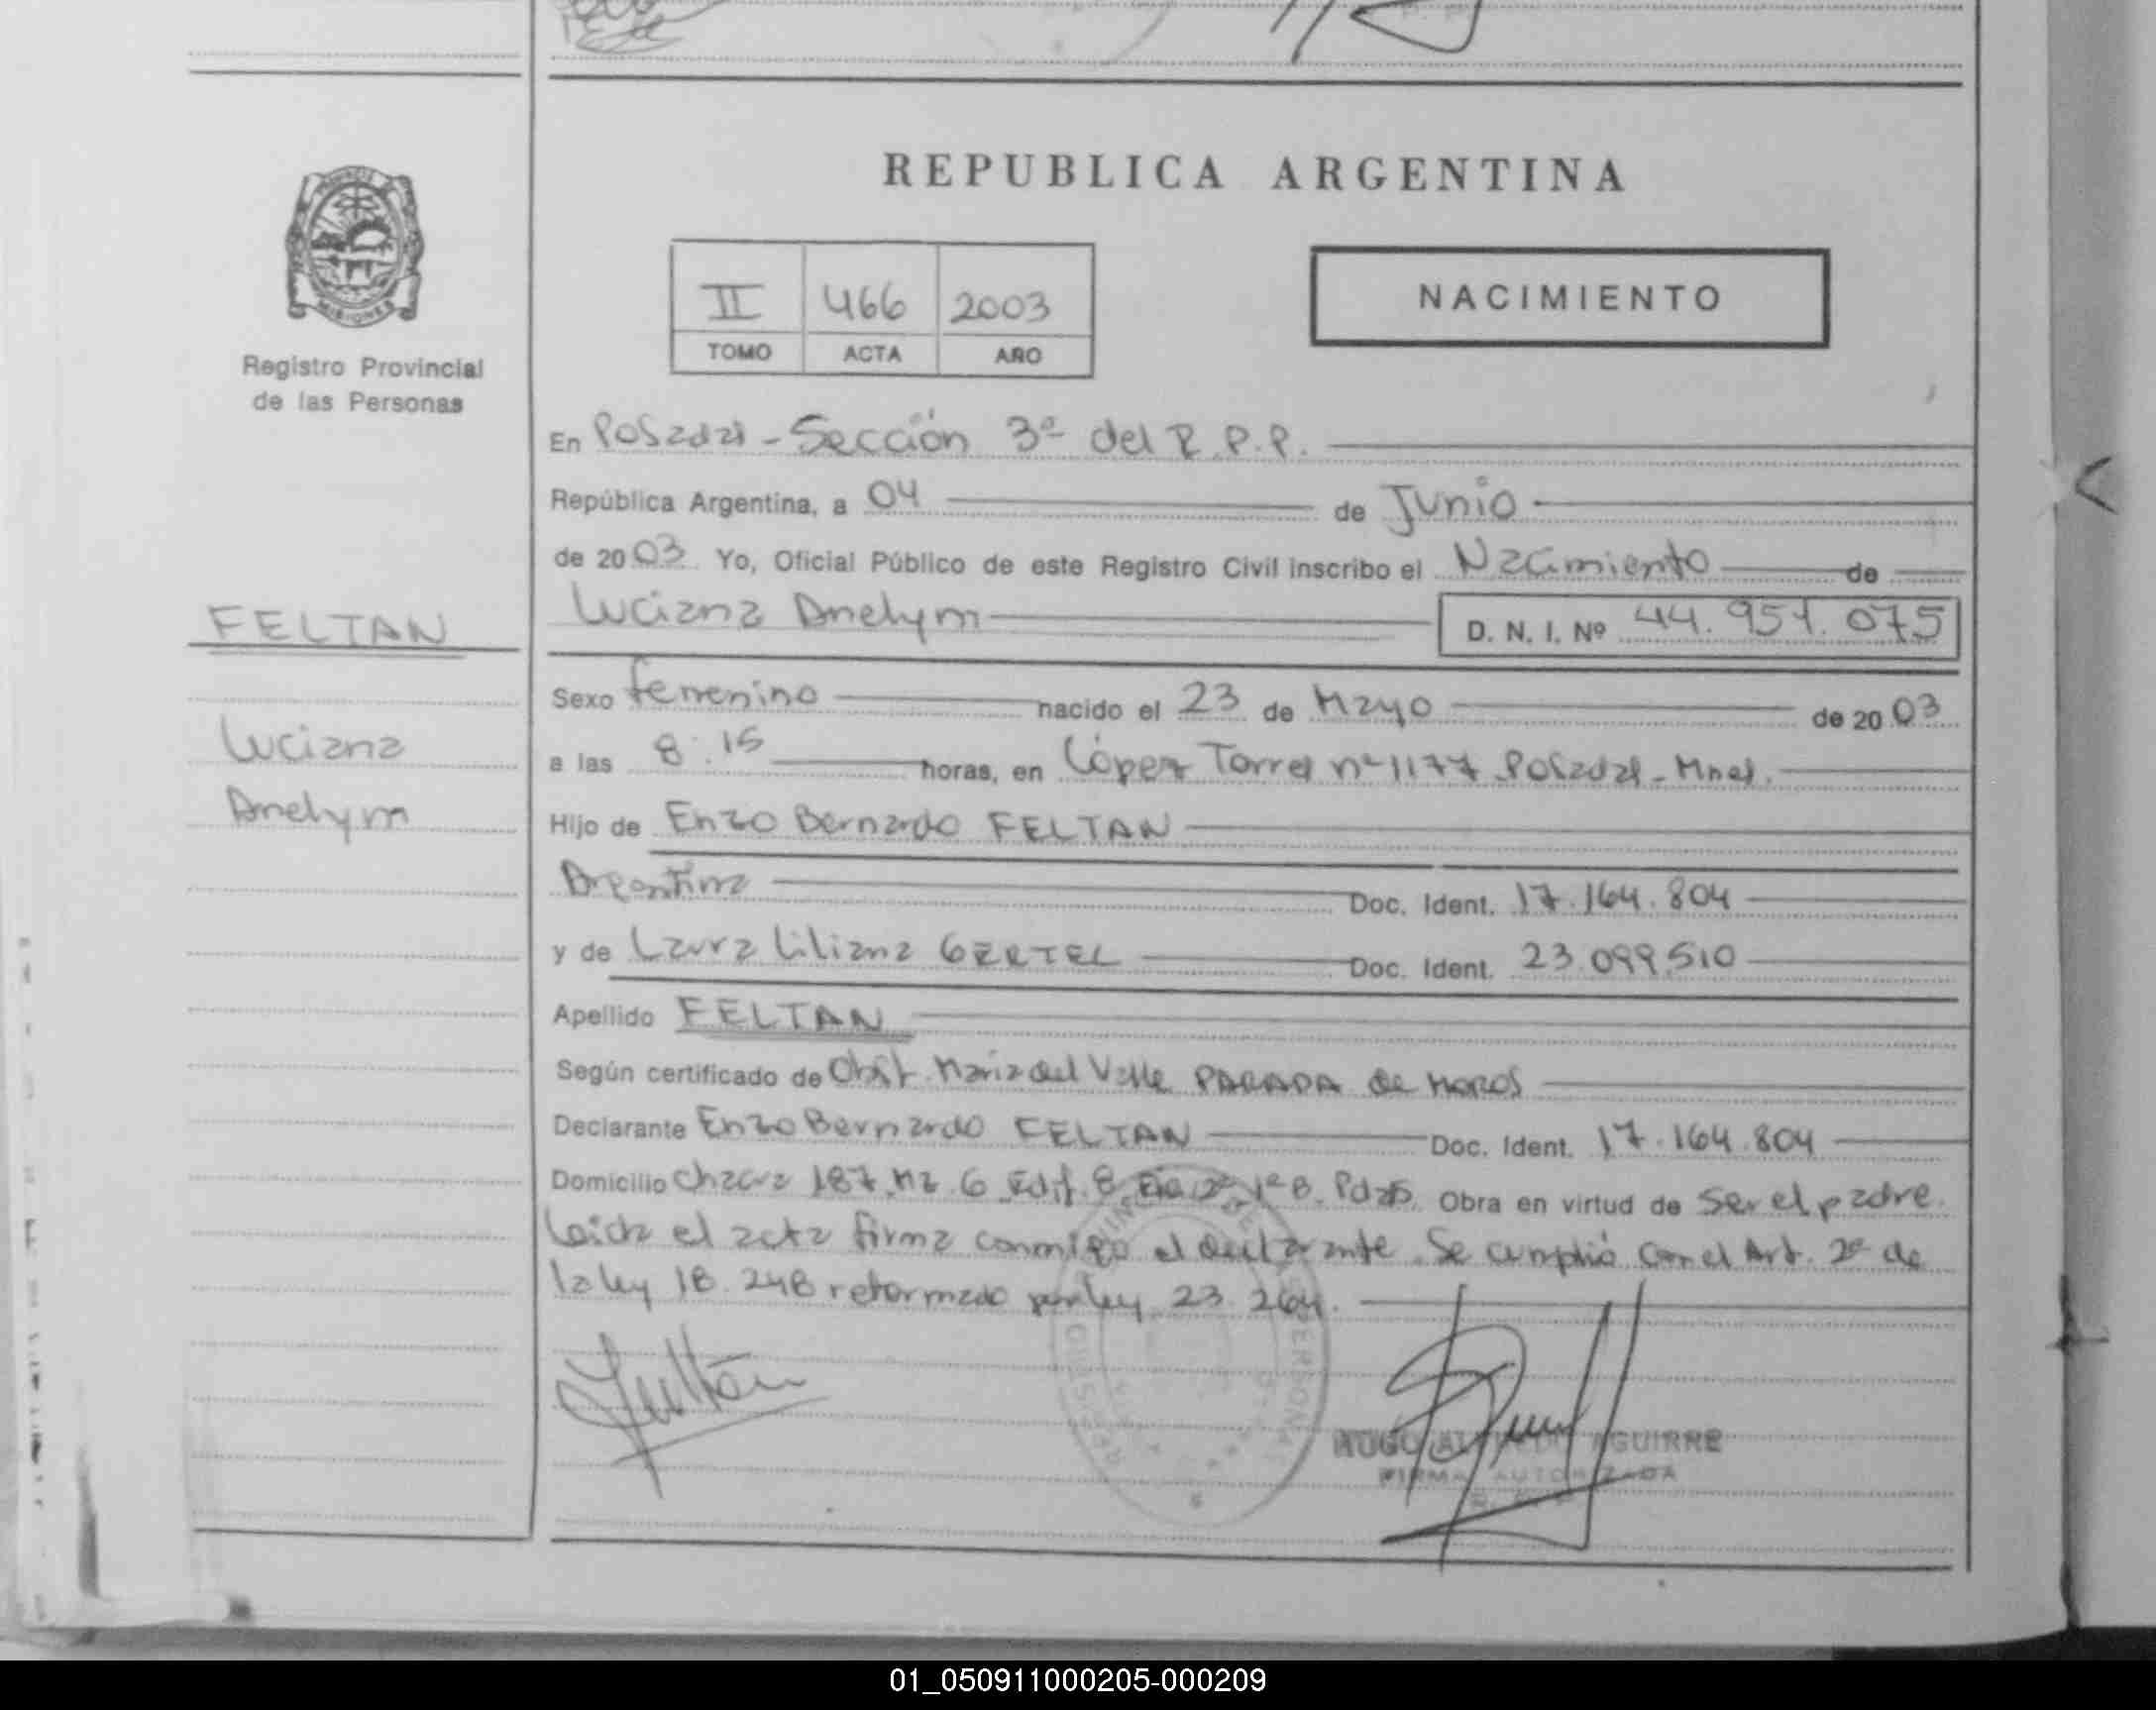 REPUBLICA ARGENTINA
MISIONES
Registro Provincial
de las Personas
II 466 2003
TOMO ACTA AÑO
NACIMIENTO
En Posadas - Sección 3ª del R.P.P.
República Argentina, a 04 de Junio
de 2003 Yo, Oficial Público de este Registro Civil inscribo el Nacimiento de
Luciana Anelym D. N. I. Nº 44.951.075
FELTAN
Luciana
Anelym
Sexo femenino nacido el 23 de Mayo de 2003
a las 8:15 horas, en López Torres nº 1177 Posadas - Mnes.
Hijo de Enzo Bernardo FELTAN
Argentina Doc. Ident. 17.164.804
y de Laura Liliana GERTEL Doc. Ident. 23.099.510
Apellido FELTAN
Según certificado de Obst. Maria del Valle PARADA de MOROS
Declarante Enzo Bernardo FELTAN Doc. Ident. 17.164.804
Domicilio Chacra 187 Mz 6 Edif. 8 1º B. Pdas. Obra en virtud de Ser el padre.
Leida el acta firma conmigo el declarante. Se cumplió con el Art. 2º de
la ley 18.248 reformado por ley 23.264.
Feltan
HUGO ALFREDO AGUIRRE
FIRMA AUTORIZADA
01_050911000205-000209